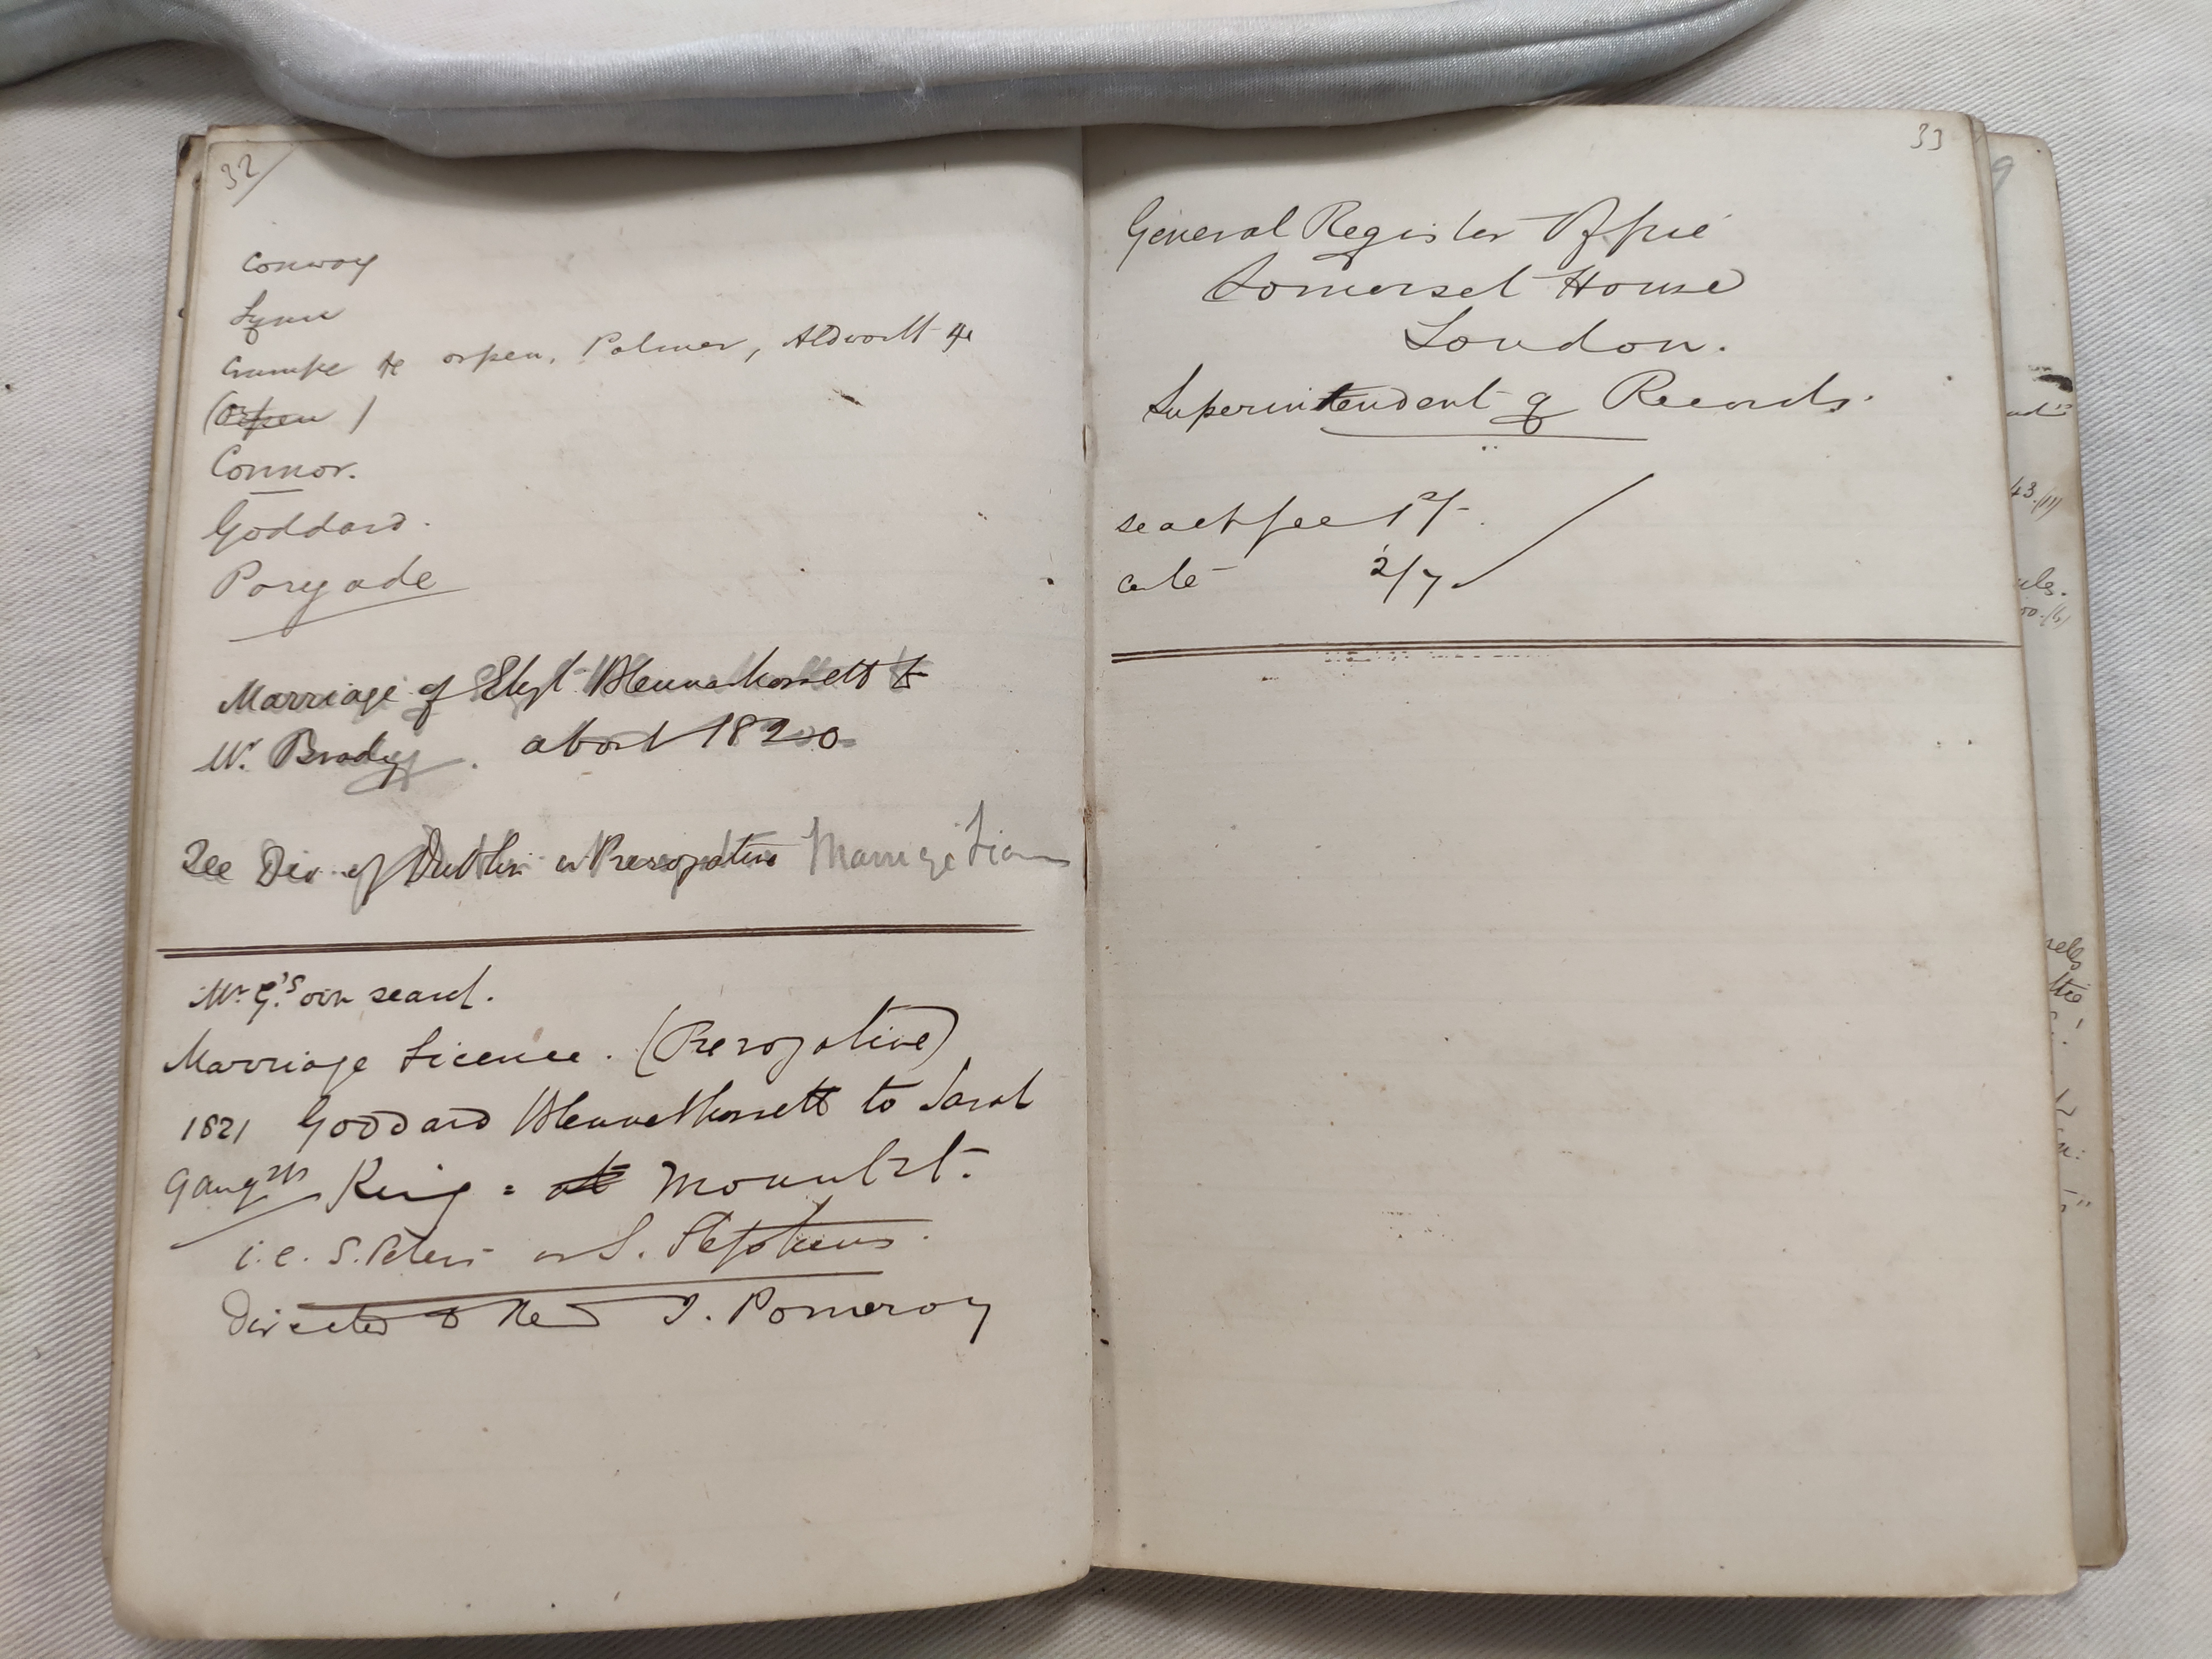 32
Conway
Lynn
Crumpe &c Orpen, Palmer, Aldworth &c
(Orpen)
Connor.
Goddard.
Marriage of Elizt. Blennerhassett to
Mr. Brady. about 1820
See Dio. of Dublin or Prerogative Marriage Licen
Mr. G.'s own search.
Marriage Licence. (Prerogative)
1821 Goddard Blennerhassett to Sarah
King = at Mount St.
i.e. S. Peters or S. Stephens.
Directed to Revd J. Pomeroy
33
General Register Office
Somerset House
London.
Superintendent of Records.
search fee 1/-
certe 2/7